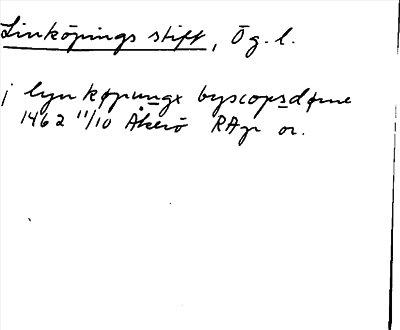 Linköpings stift, Ög. l.
j lynkøpungx byscopsdøme
1462 11/10 Åkerö RAp or.